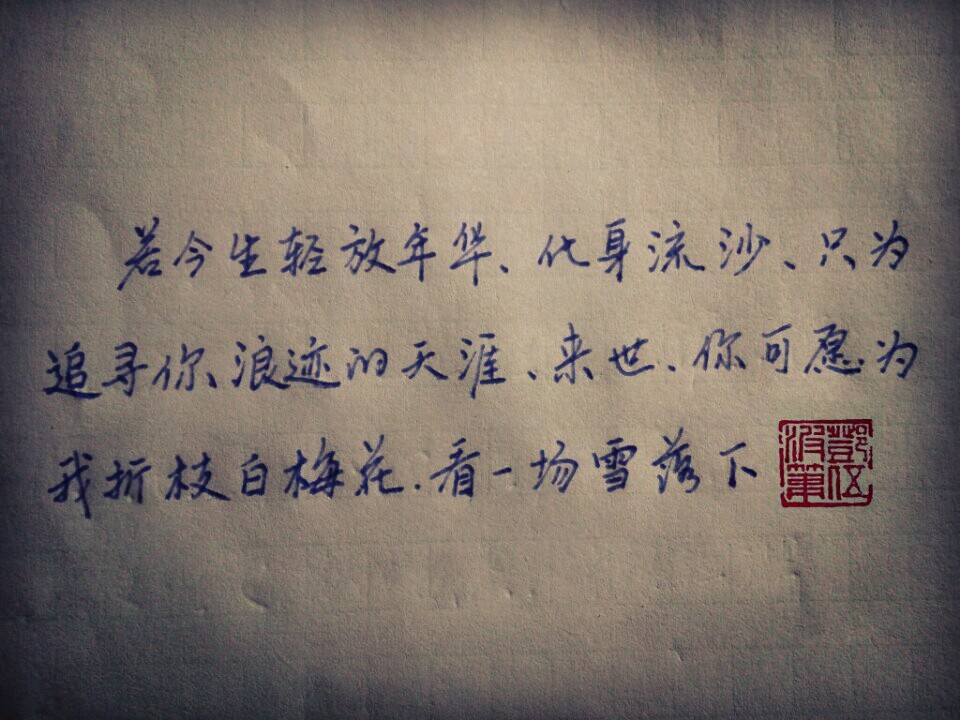 若今生轻放年华、化身流沙、只为
追寻你、浪迹的天涯、来世、你可愿、为
我折枝白梅花.看一场雪落下